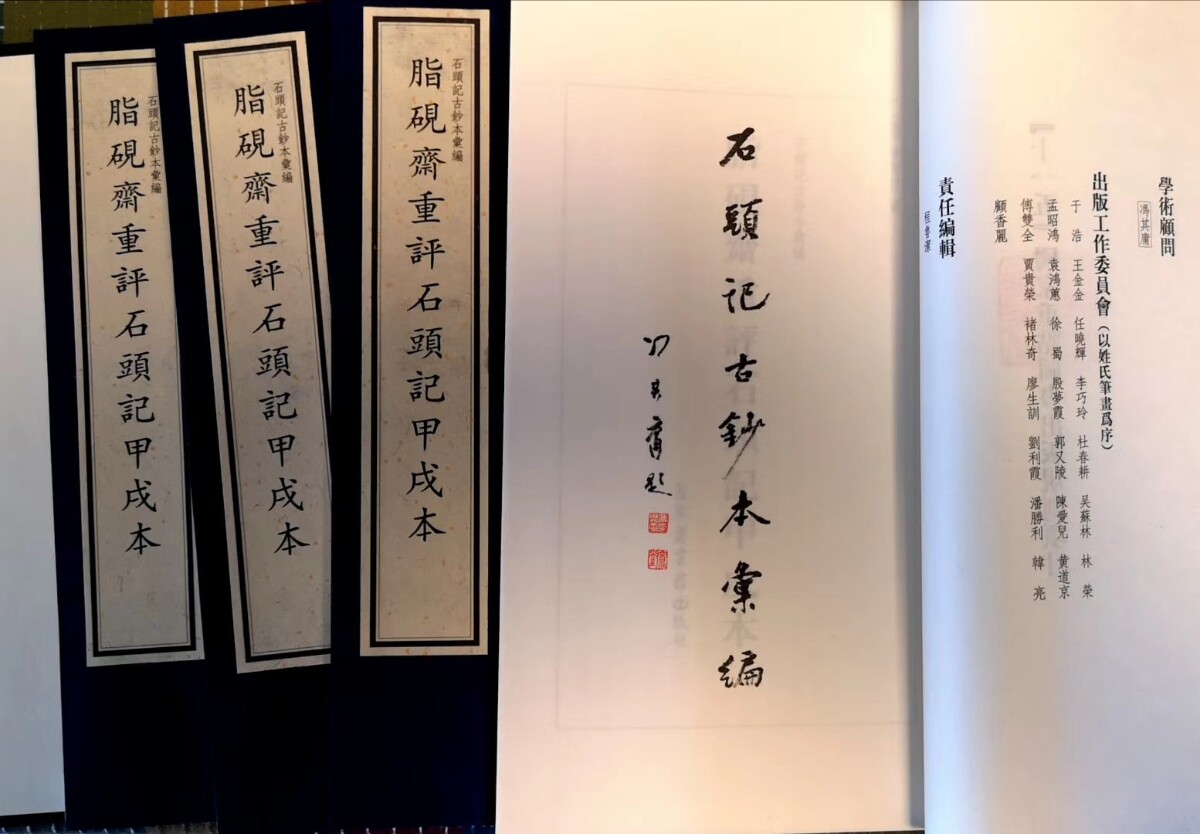 石頭記古鈔本彙編
脂硯齋重評石頭記甲戌本
石頭記古鈔本彙編
脂硯齋重評石頭記甲戌本
石頭記古鈔本彙編
脂硯齋重評石頭記甲戌本
石頭記古鈔本彙編
馮其庸題
學術顧問
馮其庸
出版工作委員會（以姓氏筆畫爲序）
于 浩 王金金 任曉輝 李巧玲 杜春耕 吴蘇林 林 榮
孟昭鴻 袁鴻蕙 徐 蜀 殷夢霞 郭又陵 陳愛兒 黄道京
傅雙全 賈貴榮 褚林奇 廖生訓 劉利霞 潘勝利 韓 亮
顧香麗
責任編輯
程魯潔